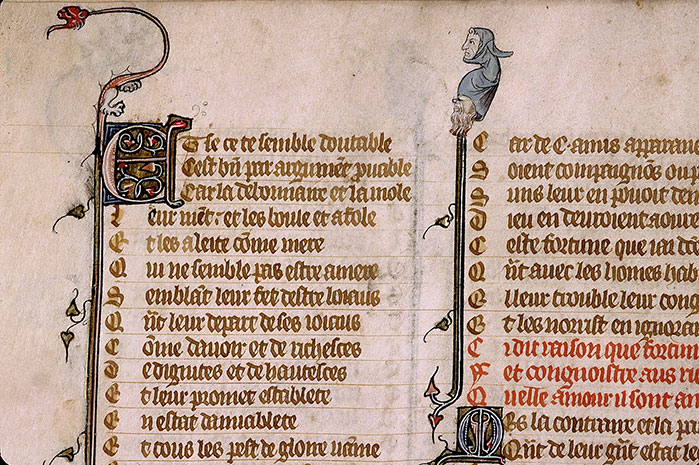 Et se ce te semble doutable
Cest bñ par argumēt prouable
Car la debonnaire et la mole
Leur mēt · et les boule et afole
Et les aleite cōme mere
Qui ne semble pas estre amere
Semblāt leur fet destre loiaus
Qñt leur depart de ses ioiaus
Cōme dauoir et de richesces
De dignites et de hautesces
Et leur promet establete
En estat de muablete
Et tous les pest de gloire uaine
Car de ·C· amis apparans
Soient compaignōs ou p
Suns leur en pouoit de
Dieu en deuroient aour
Ceste fortune que iai d
Qñt auec les homes hab
El leur trouble leur con
Et les norrist en ignora
Ci dit raison que fortun
Fet congnoistre aus ri
Quelle amour il sont am
Mes la contraire et la pa
Qñt de leur gñt estat l